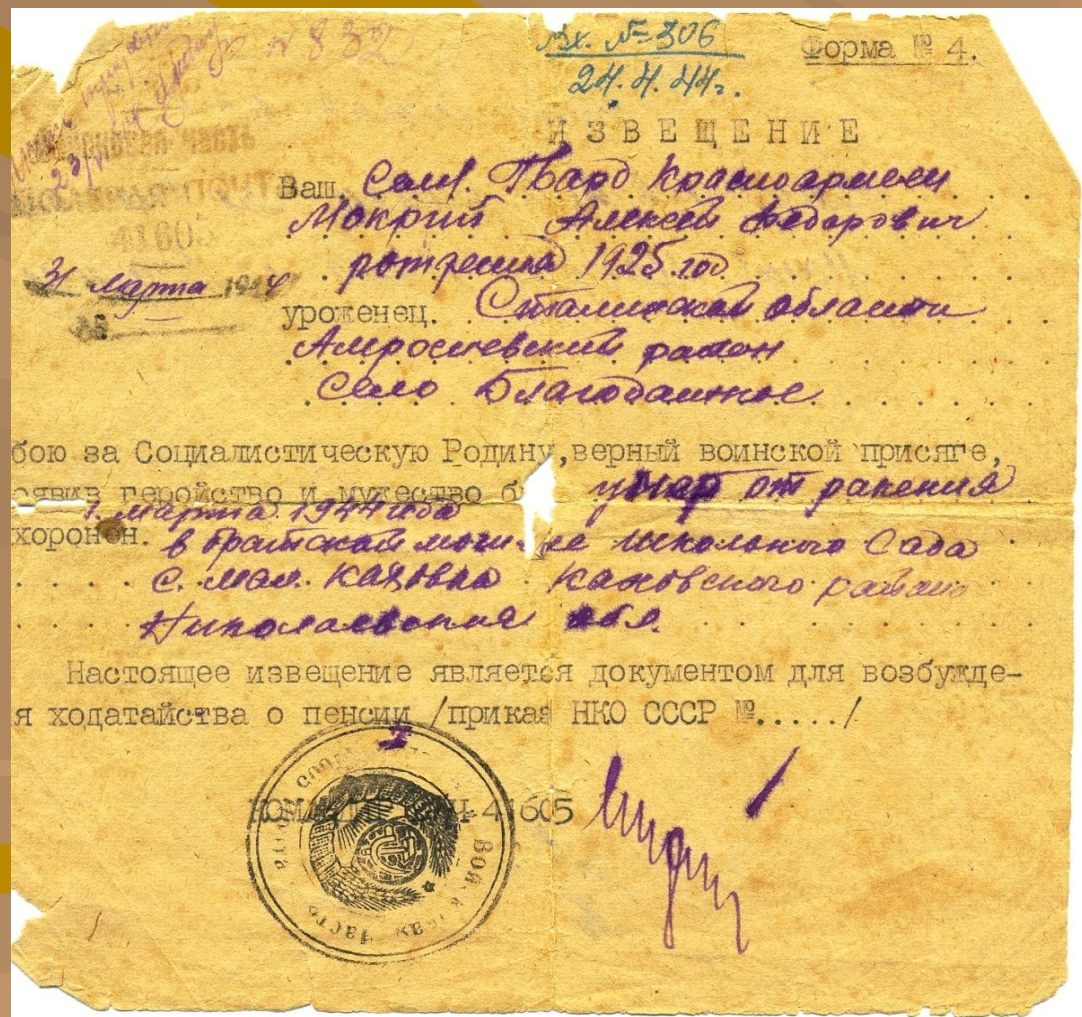 № 832
Вх. № 306
24.4.44г.
Форма № 4.
ИЗВЕЩЕНИЕ
Ваш Сын. Гвард Красноармеец
Мокрий Алексей Федорович
рождения 1925 год
41605
31 марта 1944
уроженец. Сталинской области
Амросиевский район
село Благодатное
бою за Социалистическую Родину, верный воинской присяге,
оявив геройство и мужество б умер от ранения
1. марта 1944 года
хоронен. в братской могиле школьного Сада
с. мал. Каховка Каховского района
Николаевская обл.
Настоящее извещение является документом для возбужде-
я ходатайства о пенсии /приказ НКО СССР №...../
41605
Войсковая Часть